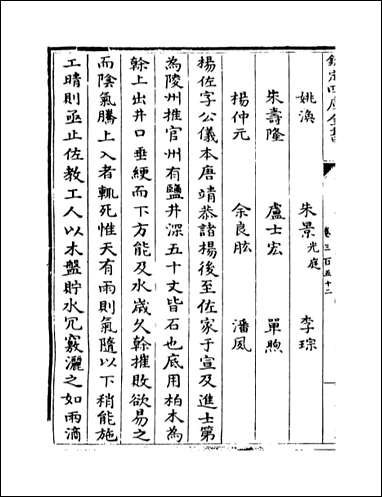 欽定四庫全書
卷三百五十二
姚渙　朱景光庭　李琮
朱壽隆　盧士宏　單煦
楊仲元　余良肱　潘夙
楊佐字公儀本唐靖恭諸楊後至佐家于宣及進士第
為陵州推官州有鹽井深五十丈皆石也底用柏木為
榦上出井口垂綆而下方能及水歲久榦摧敗欲易之
而陰氣騰上入者輒死惟天有雨則氣隨以下稍能施
工晴則亟止佐教工人以木盤貯水冗竅灑之如雨滴